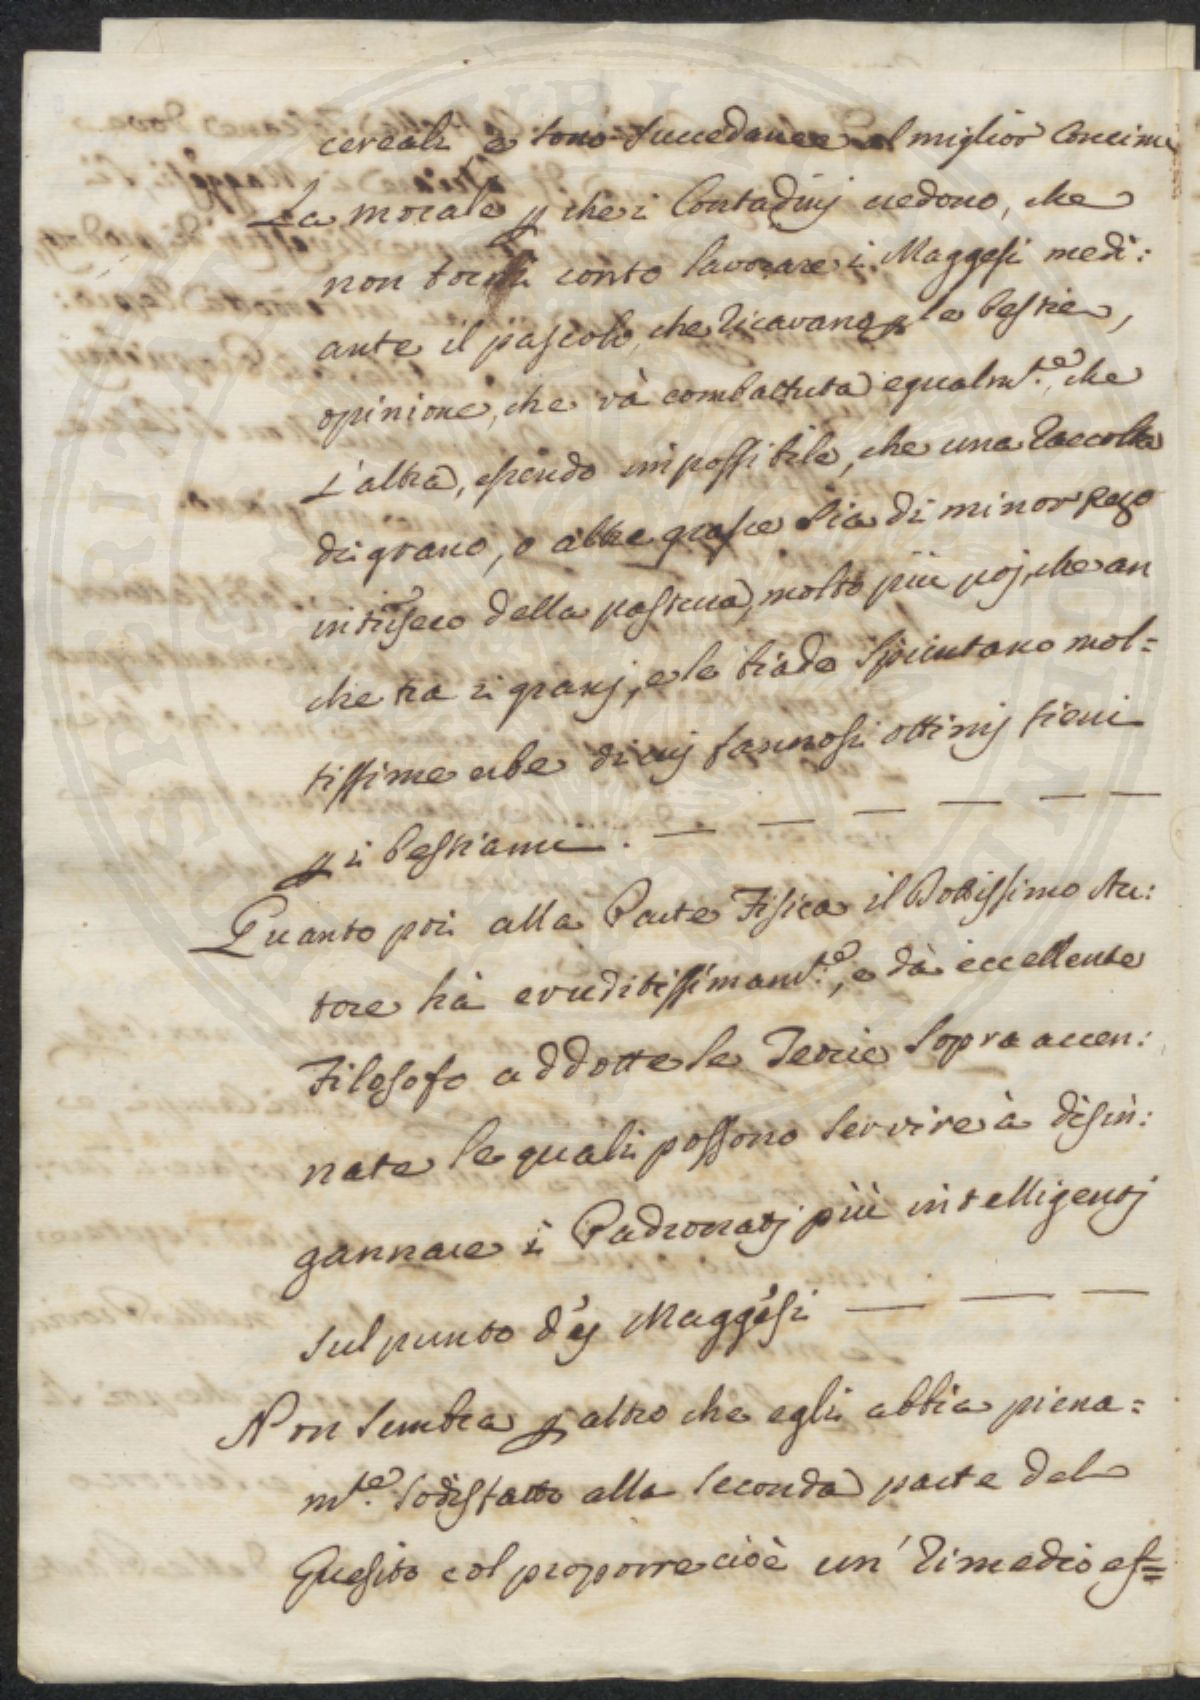 cereali e sono succedanee al miglior Concime
La morale p che i Contadinj credono, che
non torni conto lavorare i Maggesi medi:
ante il pascolo, che ricavano p le bestie,
opinione, che và combattuta egualmte., che
l'altra, essendo impossibile, che una raccolta
di grano, o altre grasce sia di minor pregio
intrinseco della pastura, molto più poj, che an
che tra i granj, e le biade spuntano mol=
tissime erbe di cuj fannosi ottimj fieni
p i bestiami. — — — — — —
Quanto poi alla Parte Fisica il Dottissimo Au:
tore hà eruditissimamte., e dà eccellente
Filosofo addotte le Teorie sopra accen:
nate le quali possono servire à disin:
gannare i Padronatj più intelligentj
sul punto dej Maggesi — — —
Non sembra p altro che egli abbia piena=
mte. sodisfatto alla seconda parte del
Quesito col proporre cioè un' rimedio ef=